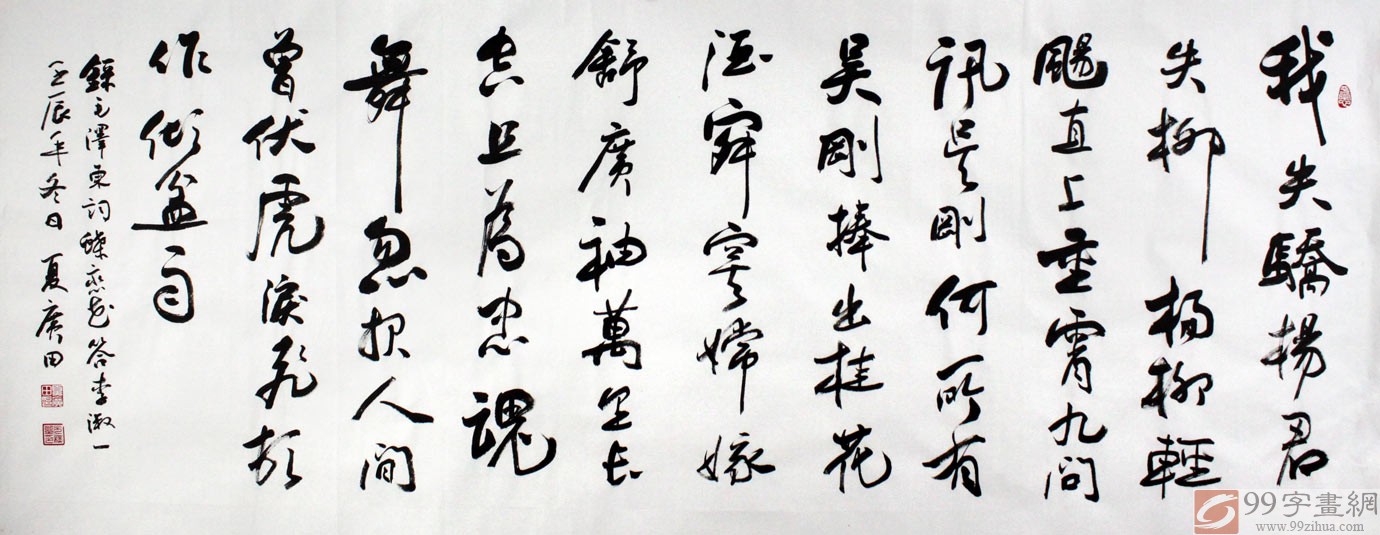 我失驕楊君
失柳楊柳輕
颺直上重霄九問
訊吳剛何所有
吳剛捧出桂花
酒寂寞嫦娥
舒廣袖萬里長
空且為忠魂
舞忽報人間
曾伏虎淚飛頓
作傾盆雨
錄毛澤東詞蝶戀花答李淑一
壬辰年冬日夏廣田
99字畫網
www.99zihua.com